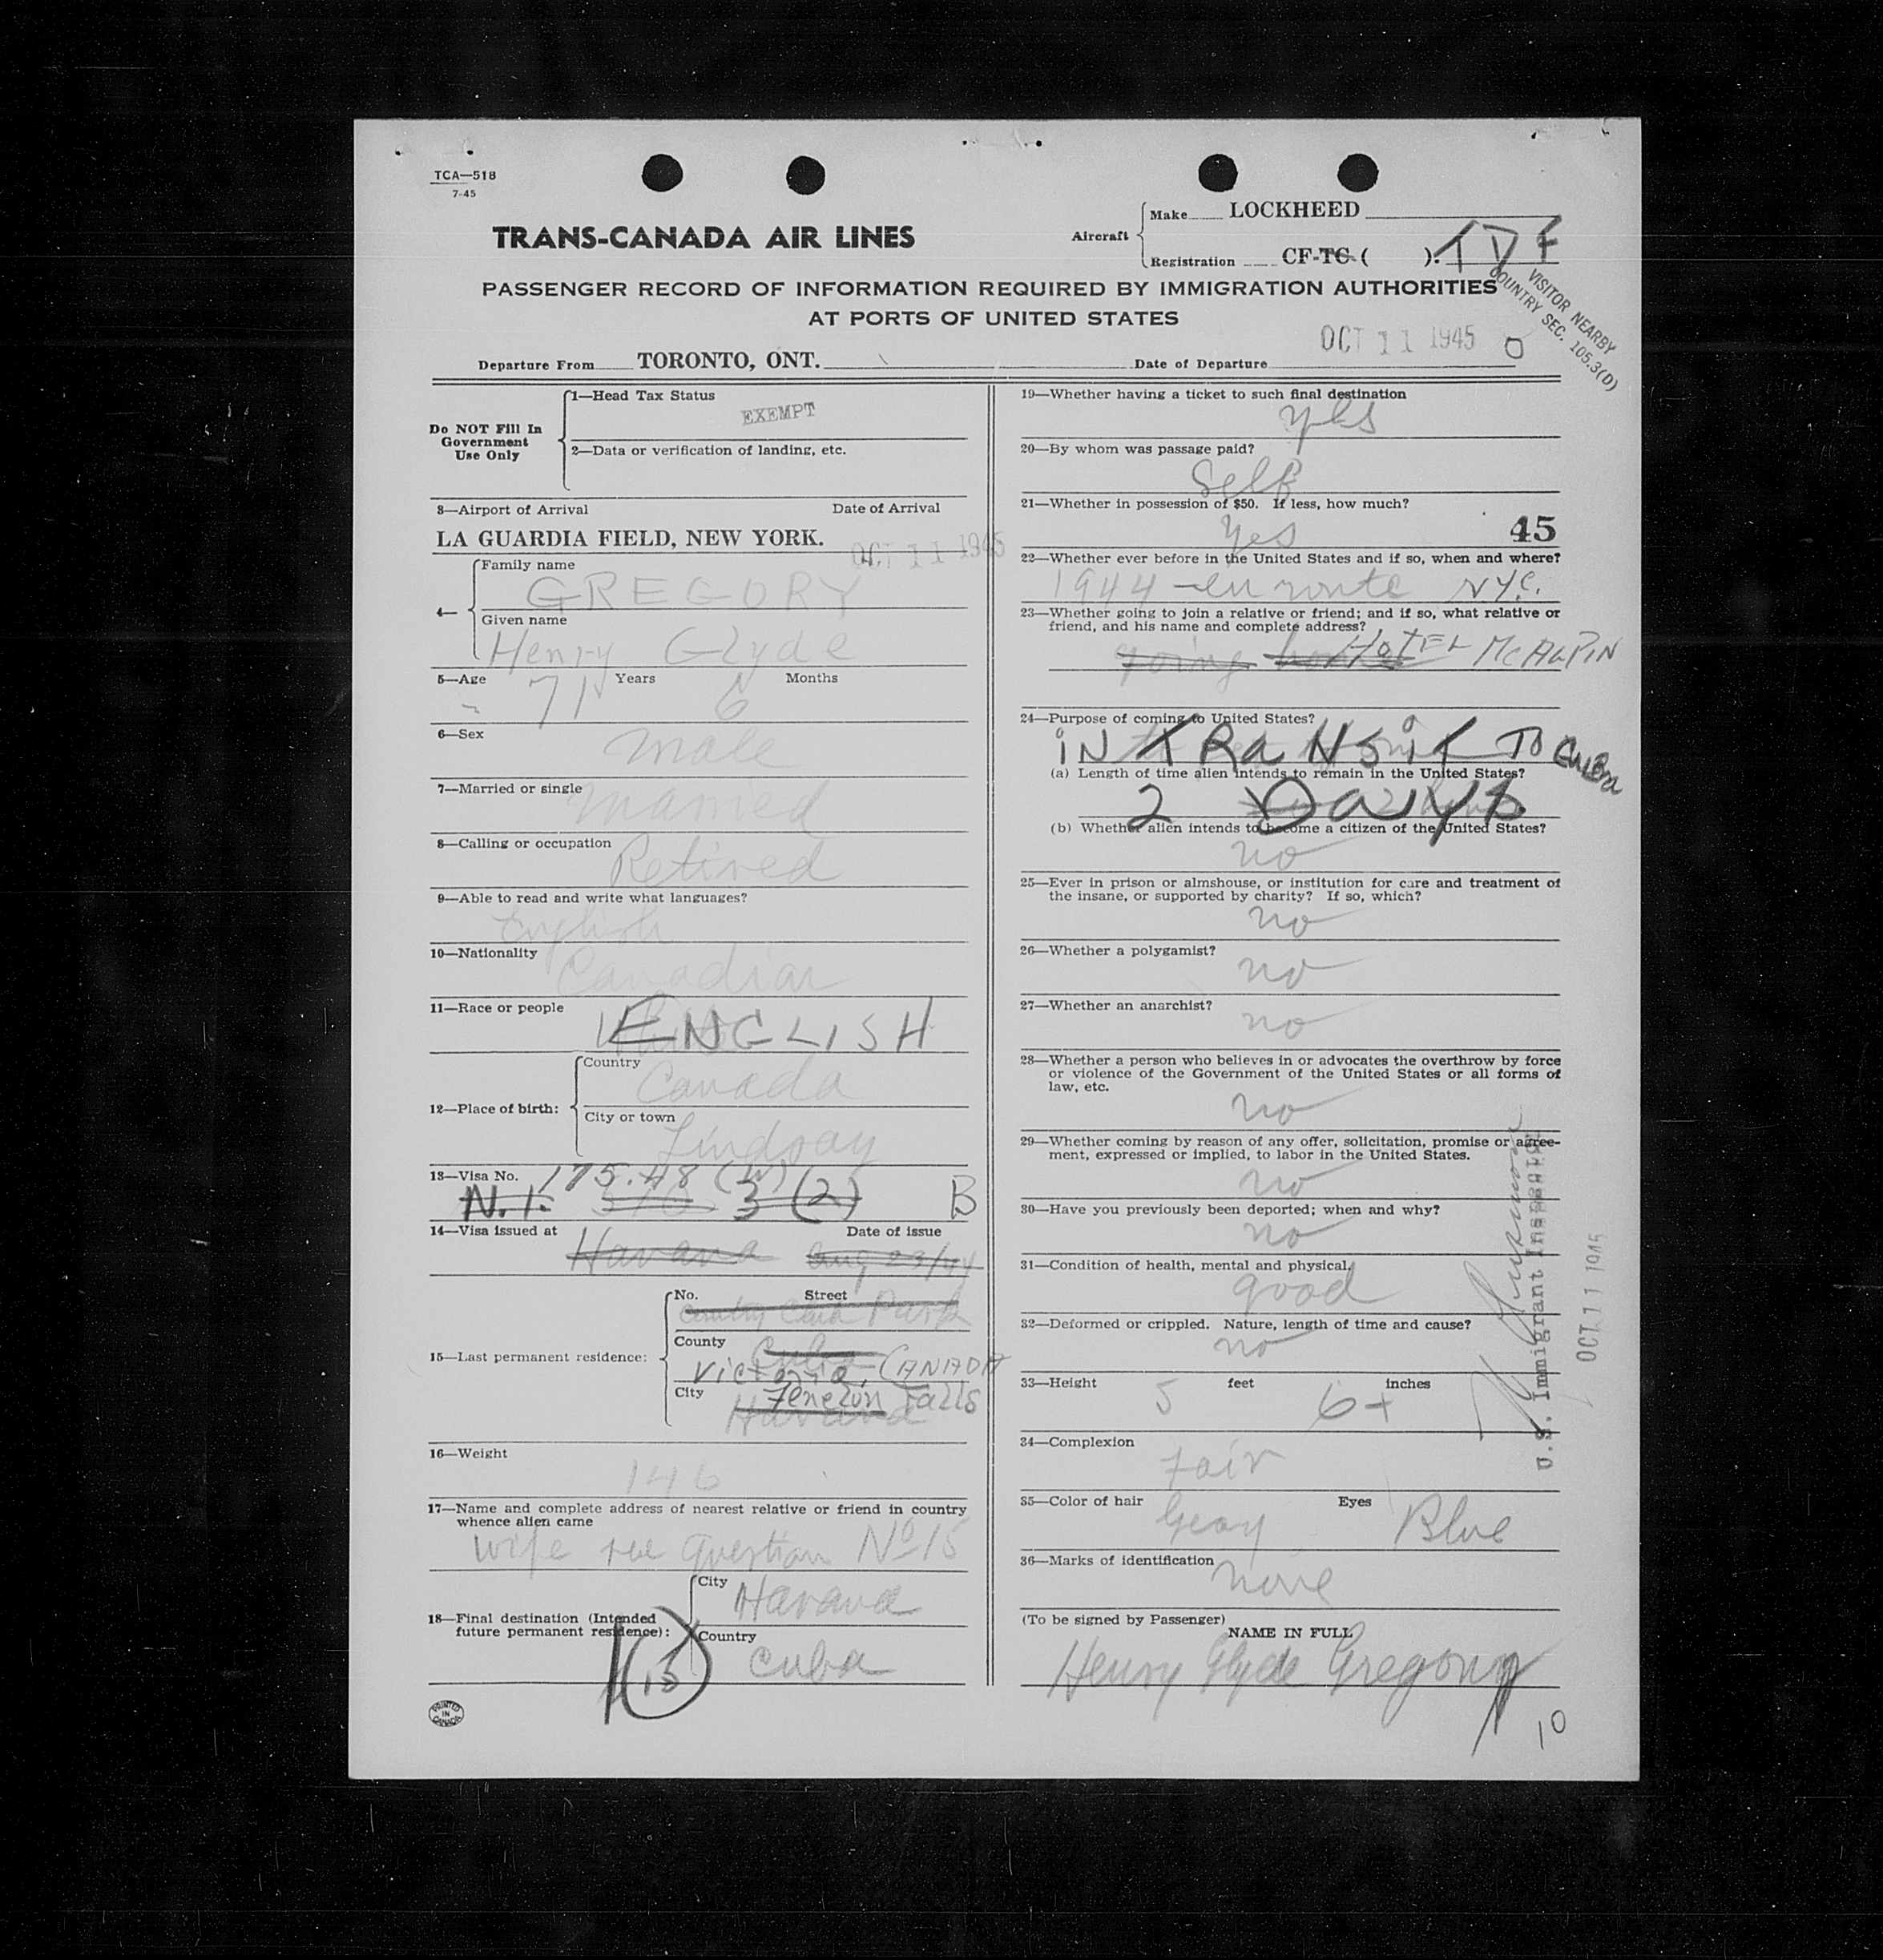 TCA—518
7-45
TRANS-CANADA AIR LINES
Aircraft
Make LOCKHEED
Registration CF-TC ( ). TDF
PASSENGER RECORD OF INFORMATION REQUIRED BY IMMIGRATION AUTHORITIES
AT PORTS OF UNITED STATES
VISITOR NEARBY
COUNTRY SEC. 105.3(D)
Departure From TORONTO, ONT. Date of Departure OCT 11 1945
Do NOT Fill In
Government
Use Only
1—Head Tax Status
EXEMPT
2—Data or verification of landing, etc.
3—Airport of Arrival Date of Arrival
LA GUARDIA FIELD, NEW YORK. OCT 11 1945
4—
Family name
GREGORY
Given name
Henry Clyde
5—Age 71 Years 6 Months
6—Sex
male
7—Married or single
married
8—Calling or occupation
Retired
9—Able to read and write what languages?
English
10—Nationality
Canadian
11—Race or people
ENGLISH
12—Place of birth:
Country
Canada
City or town
Lindsay
13—Visa No. 175.48 (W)
N.I. 3 (2) B
14—Visa issued at Date of issue
Havana Aug 23/44
15—Last permanent residence:
No. Street
Country Club Park
County Cuba
Victoria, CANADA
City Fenelon Falls
Havana
16—Weight
146
17—Name and complete address of nearest relative or friend in country
whence alien came
Wife see Question No 15
18—Final destination (Intended
future permanent residence):
City
Havana
Country
Cuba
(15)
PRINTED
IN
CANADA
19—Whether having a ticket to such final destination
yes
20—By whom was passage paid?
Self
21—Whether in possession of $50. If less, how much?
Yes 45
22—Whether ever before in the United States and if so, when and where?
1944 - en route NYC.
23—Whether going to join a relative or friend; and if so, what relative or
friend, and his name and complete address?
going home HOTEL McALPIN
24—Purpose of coming to United States?
iN TRANSiT TO CUBA
(a) Length of time alien intends to remain in the United States?
2 DAYS
(b) Whether alien intends to become a citizen of the United States?
no
25—Ever in prison or almshouse, or institution for care and treatment of
the insane, or supported by charity? If so, which?
no
26—Whether a polygamist?
no
27—Whether an anarchist?
no
28—Whether a person who believes in or advocates the overthrow by force
or violence of the Government of the United States or all forms of
law, etc.
no
29—Whether coming by reason of any offer, solicitation, promise or agree-
ment, expressed or implied, to labor in the United States.
no
30—Have you previously been deported; when and why?
no
31—Condition of health, mental and physical.
good
32—Deformed or crippled. Nature, length of time and cause?
no
33—Height 5 feet 6+ inches
34—Complexion
Fair
35—Color of hair Gray Eyes Blue
36—Marks of identification
none
(To be signed by Passenger)
NAME IN FULL
Henry Clyde Gregory
10
U.S. Immigrant Inspector
OCT 11 1945